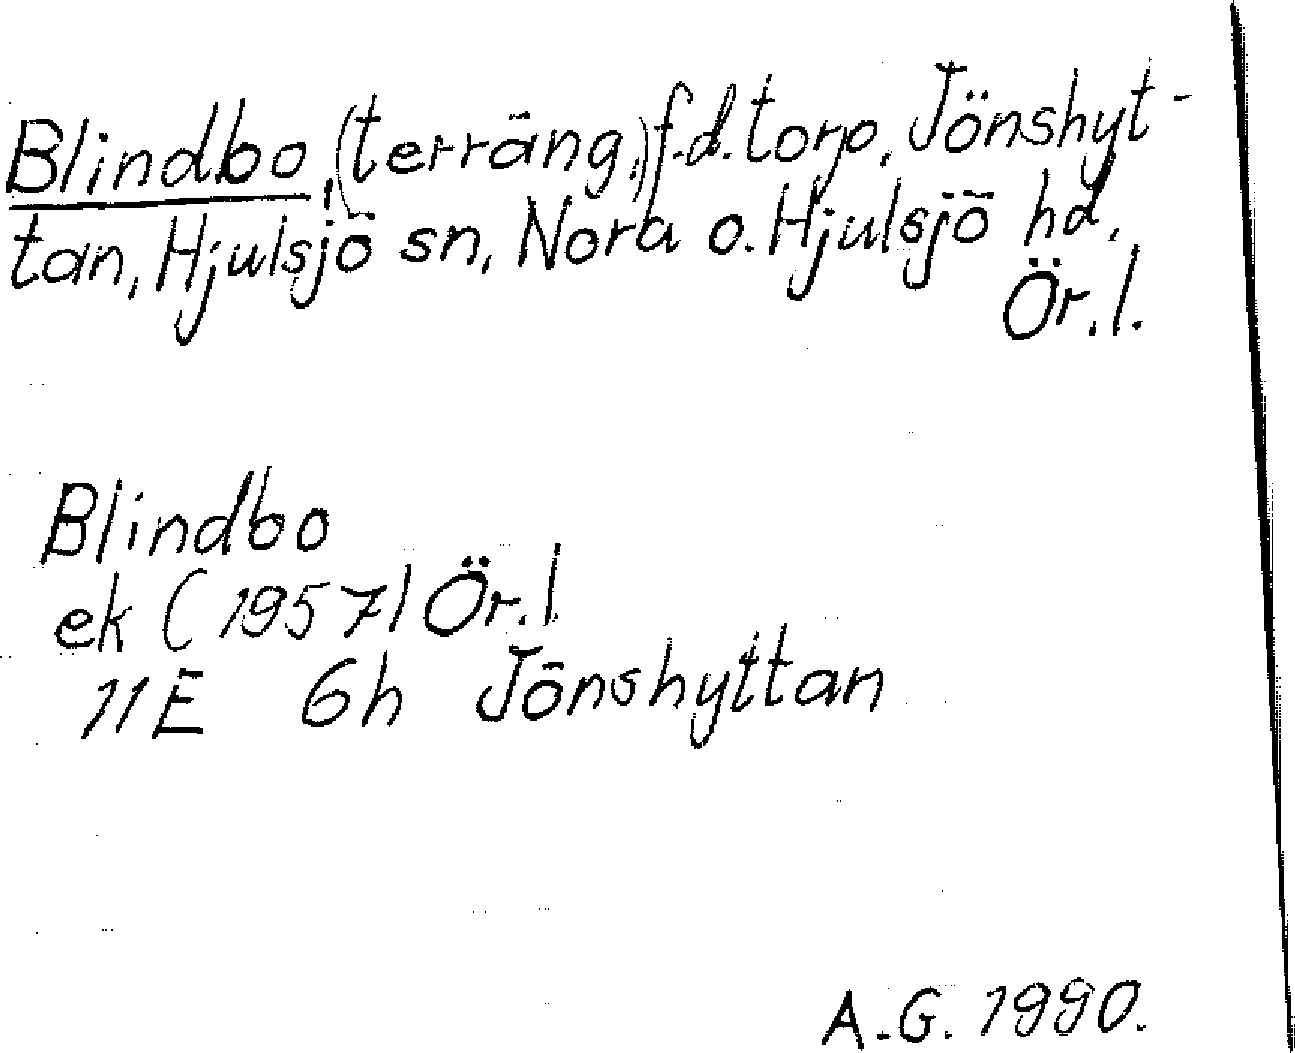 Blindbo, (terräng,) f.d. torp, Jönshyt-
tan, Hjulsjö sn, Nora o. Hjulsjö hd,
Ör. l.
Blindbo
ek (1957) Ör. l.
11E 6h Jönshyttan
A.G. 1990.